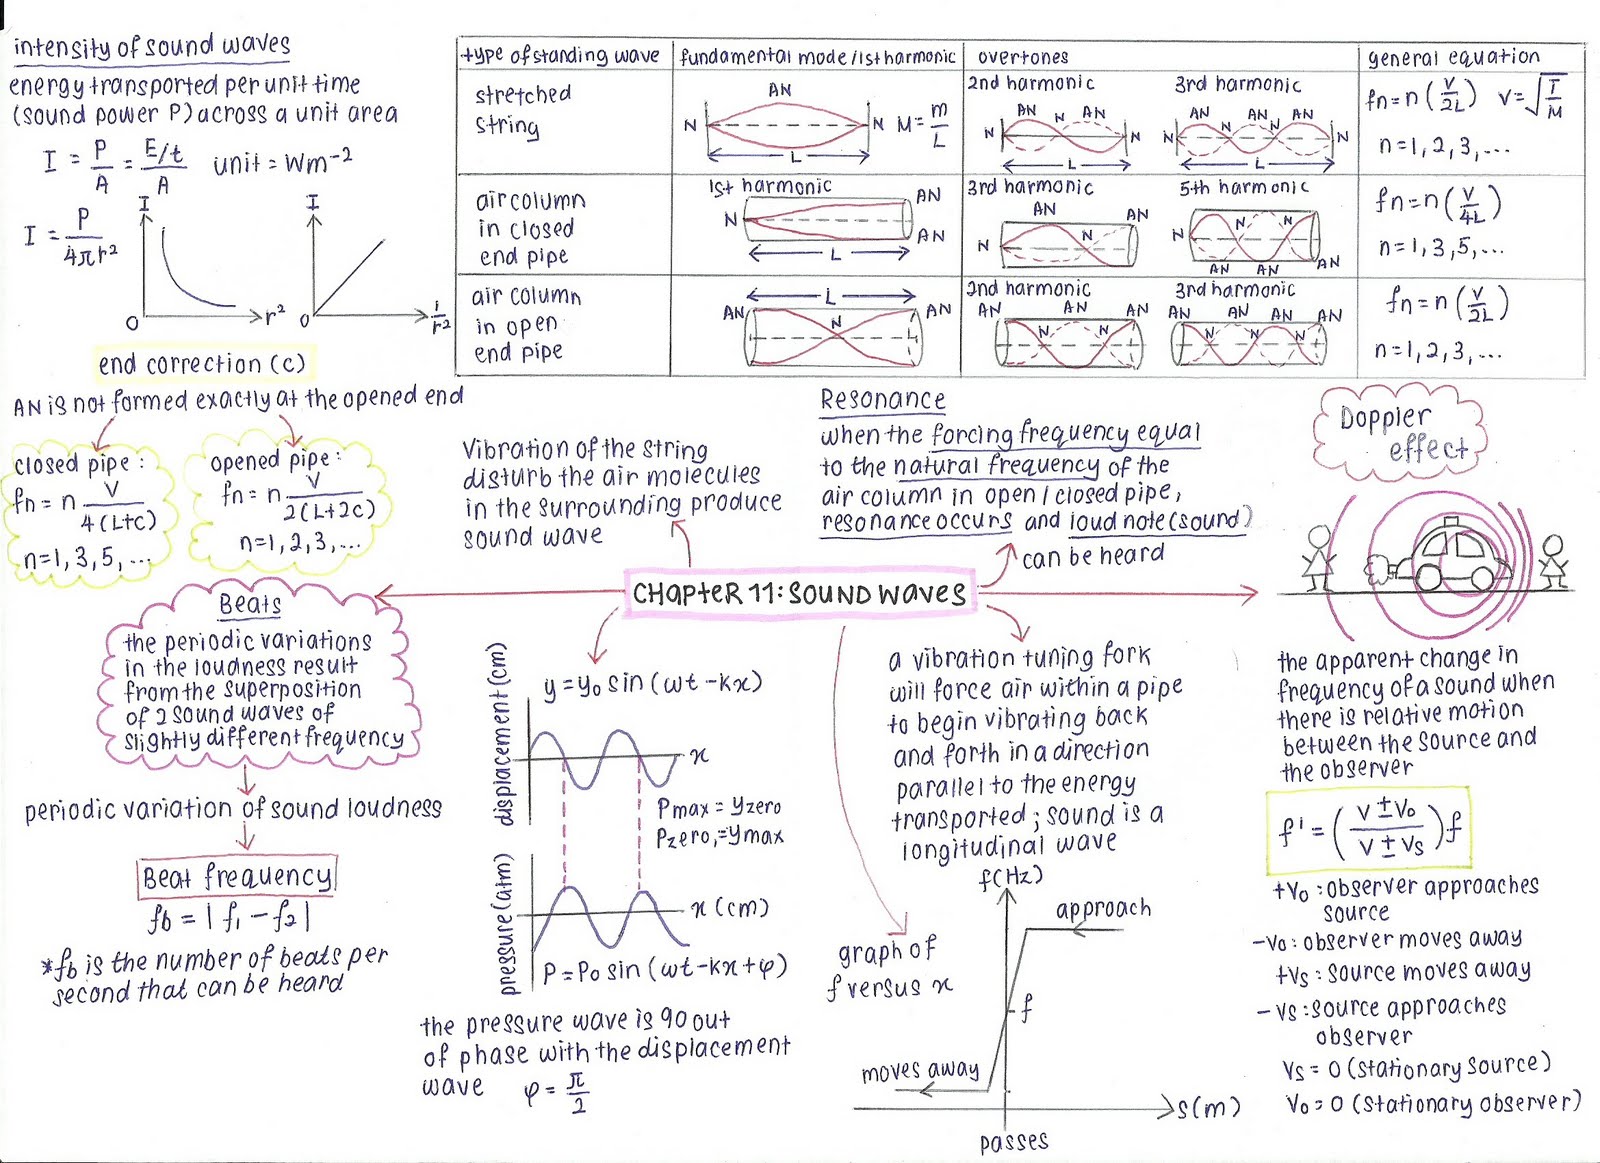 intensity of sound waves
energy transported per unit time
(sound power P) across a unit area
I = P/A = E/t/A unit = Wm⁻²
I = P/4πr²
I
0
r²
I
0
1/r²
type of standing wave
fundamental mode/1st harmonic
overtones
general equation
stretched
string
AN
N
N
M = m/L
L
2nd harmonic
AN
N
AN
N
N
L
3rd harmonic
AN
N
AN
N
AN
N
N
L
fn = n(V/2L) V = √T/M
n = 1, 2, 3, ...
air column
in closed
end pipe
1st harmonic
N
AN
AN
L
3rd harmonic
AN
AN
N
N
5th harmonic
N
N
N
AN
AN
AN
fn = n(V/4L)
n = 1, 3, 5, ...
air column
in open
end pipe
L
AN
N
AN
2nd harmonic
AN
AN
AN
N
N
3rd harmonic
AN
AN
AN
AN
N
N
N
fn = n(V/2L)
n = 1, 2, 3, ...
end correction (c)
AN is not formed exactly at the opened end
closed pipe:
fn = n V/4(L+c)
n = 1, 3, 5, ...
opened pipe:
fn = n V/2(L+2c)
n = 1, 2, 3, ...
Vibration of the string
disturb the air molecules
in the surrounding produce
sound wave
Resonance
when the forcing frequency equal
to the natural frequency of the
air column in open / closed pipe,
resonance occurs and loud note (sound)
can be heard
Doppler
effect
CHAPTER 11: SOUND WAVES
Beats
the periodic variations
in the loudness result
from the superposition
of 2 sound waves of
slightly different frequency
periodic variation of sound loudness
Beat frequency
fb = | f1 - f2 |
*fb is the number of beats per
second that can be heard
y = y₀ sin (ωt - kx)
displacement (cm)
x
Pmax = yzero
Pzero, = ymax
pressure (atm)
x (cm)
P = P₀ sin (ωt - kx + φ)
the pressure wave is 90 out
of phase with the displacement
wave φ = π/2
a vibration tuning fork
will force air within a pipe
to begin vibrating back
and forth in a direction
parallel to the energy
transported; sound is a
longitudinal wave
graph of
f versus x
f (Hz)
approach
f
moves away
s (m)
passes
the apparent change in
frequency of a sound when
there is relative motion
between the source and
the observer
f' = (V ± Vo / V ± Vs) f
+Vo : observer approaches
source
-Vo : observer moves away
+Vs : source moves away
-Vs : source approaches
observer
Vs = 0 (stationary source)
Vo = 0 (stationary observer)